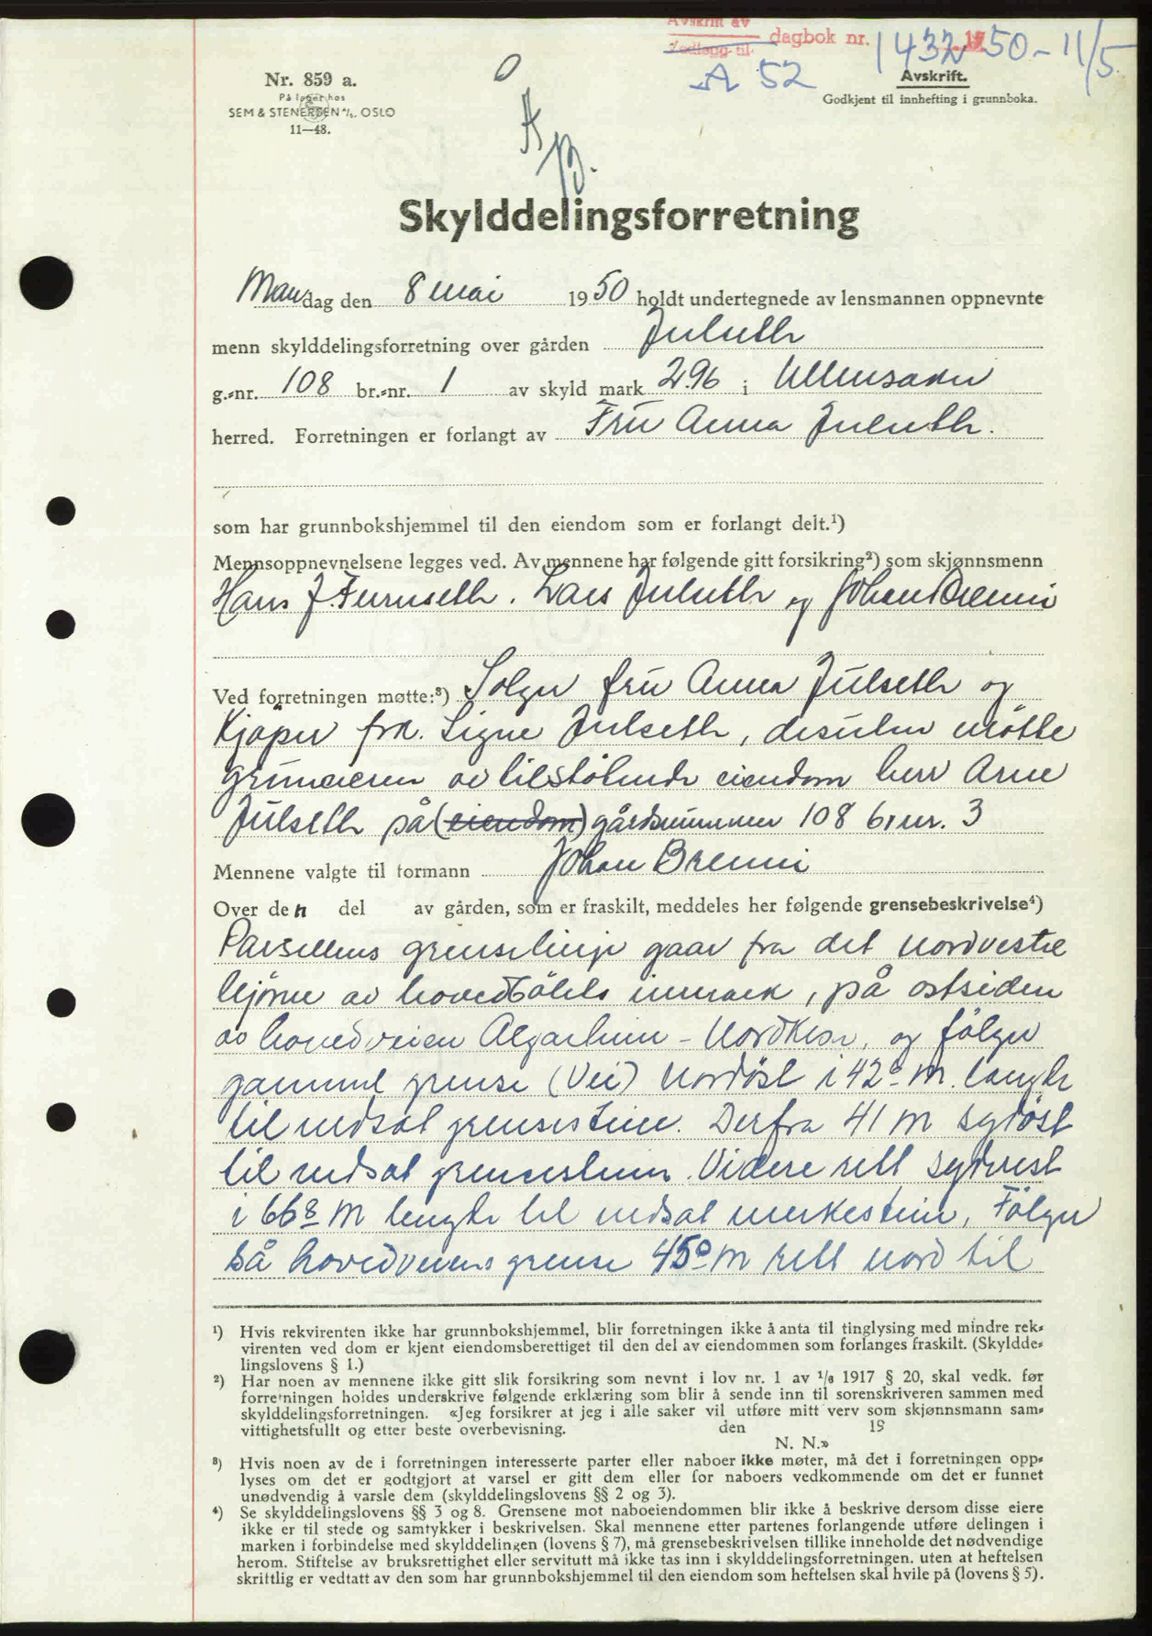 Avskrift av
Vedlegg til
dagbok nr. 1432 1950-11/5
A 52
Avskrift.
Godkjent til innhefting i grunnboka.
Nr. 859 a.
På lager hos
SEM & STENERSEN A/S. OSLO
11—48.
O
A
B.
Skylddelingsforretning
Mandag den 8 mai 1950 holdt undertegnede av lensmannen oppnevnte
menn skylddelingsforretning over gården Julseth
g.-nr. 108 br.-nr. 1 av skyld mark 2.96 i Ullensaker
herred. Forretningen er forlangt av Frü Anna Julseth.
som har grunnbokshjemmel til den eiendom som er forlangt delt.¹)
Mennsoppnevnelsene legges ved. Av mennene har følgende gitt forsikring²) som skjønnsmenn
Hans J. Furuseth. Lars Julseth og Johan Brenni
Ved forretningen møtte:³) Selger frü Anna Jülseth og
Kjøper frk. Signe Jülseth, desuten møtte
grüneieren av tilstøtende eiendom herr Arne
Jülseth på (eiendom) gårdsnummer 108 br.nr. 3
Mennene valgte til formann Johan Brenni
Over den del av gården, som er fraskilt, meddeles her følgende grensebeskrivelse⁴)
Parsellens grenselinje gaar fra det nordvestre
hjörne av hovedbölets inmark, på östsiden
av hovedveien Algarheim - Nordkisa, og følger
gammel grense (Vei) Nordöst i 42⁰ m. lengde
til nedsat grensesten. Derfra 41 m sydöst
til nedsat grensesten. Videre rett sydvest
i 66⁸ m lengde til nedsat merkesten, Følger
så hovedveiens grense 45⁰ m rett nord til
¹) Hvis rekvirenten ikke har grunnbokshjemmel, blir forretningen ikke å anta til tinglysing med mindre rek-
virenten ved dom er kjent eiendomsberettiget til den del av eiendommen som forlanges fraskilt. (Skyldde-
lingslovens § 1.)
²) Har noen av mennene ikke gitt slik forsikring som nevnt i lov nr. 1 av 1/8 1917 § 20, skal vedk. før
forretningen holdes underskrive følgende erklæring som blir å sende inn til sorenskriveren sammen med
skylddelingsforretningen. «Jeg forsikrer at jeg i alle saker vil utføre mitt verv som skjønnsmann sam-
vittighetsfullt og etter beste overbevisning. den 19
N. N.»
³) Hvis noen av de i forretningen interesserte parter eller naboer ikke møter, må det i forretningen opp-
lyses om det er godtgjort at varsel er gitt dem eller for naboers vedkommende om det er funnet
unødvendig å varsle dem (skylddelingslovens §§ 2 og 3).
⁴) Se skylddelingslovens §§ 3 og 8. Grensene mot naboeiendommen blir ikke å beskrive dersom disse eiere
ikke er til stede og samtykker i beskrivelsen. Skal mennene etter partenes forlangende utføre delingen i
marken i forbindelse med skylddelingen (lovens § 7), må grensebeskrivelsen tillike inneholde det nødvendige
herom. Stiftelse av bruksrettighet eller servitutt må ikke tas inn i skylddelingsforretningen. uten at heftelsen
skriftlig er vedtatt av den som har grunnbokshjemmel til den eiendom som heftelsen skal hvile på (lovens § 5).